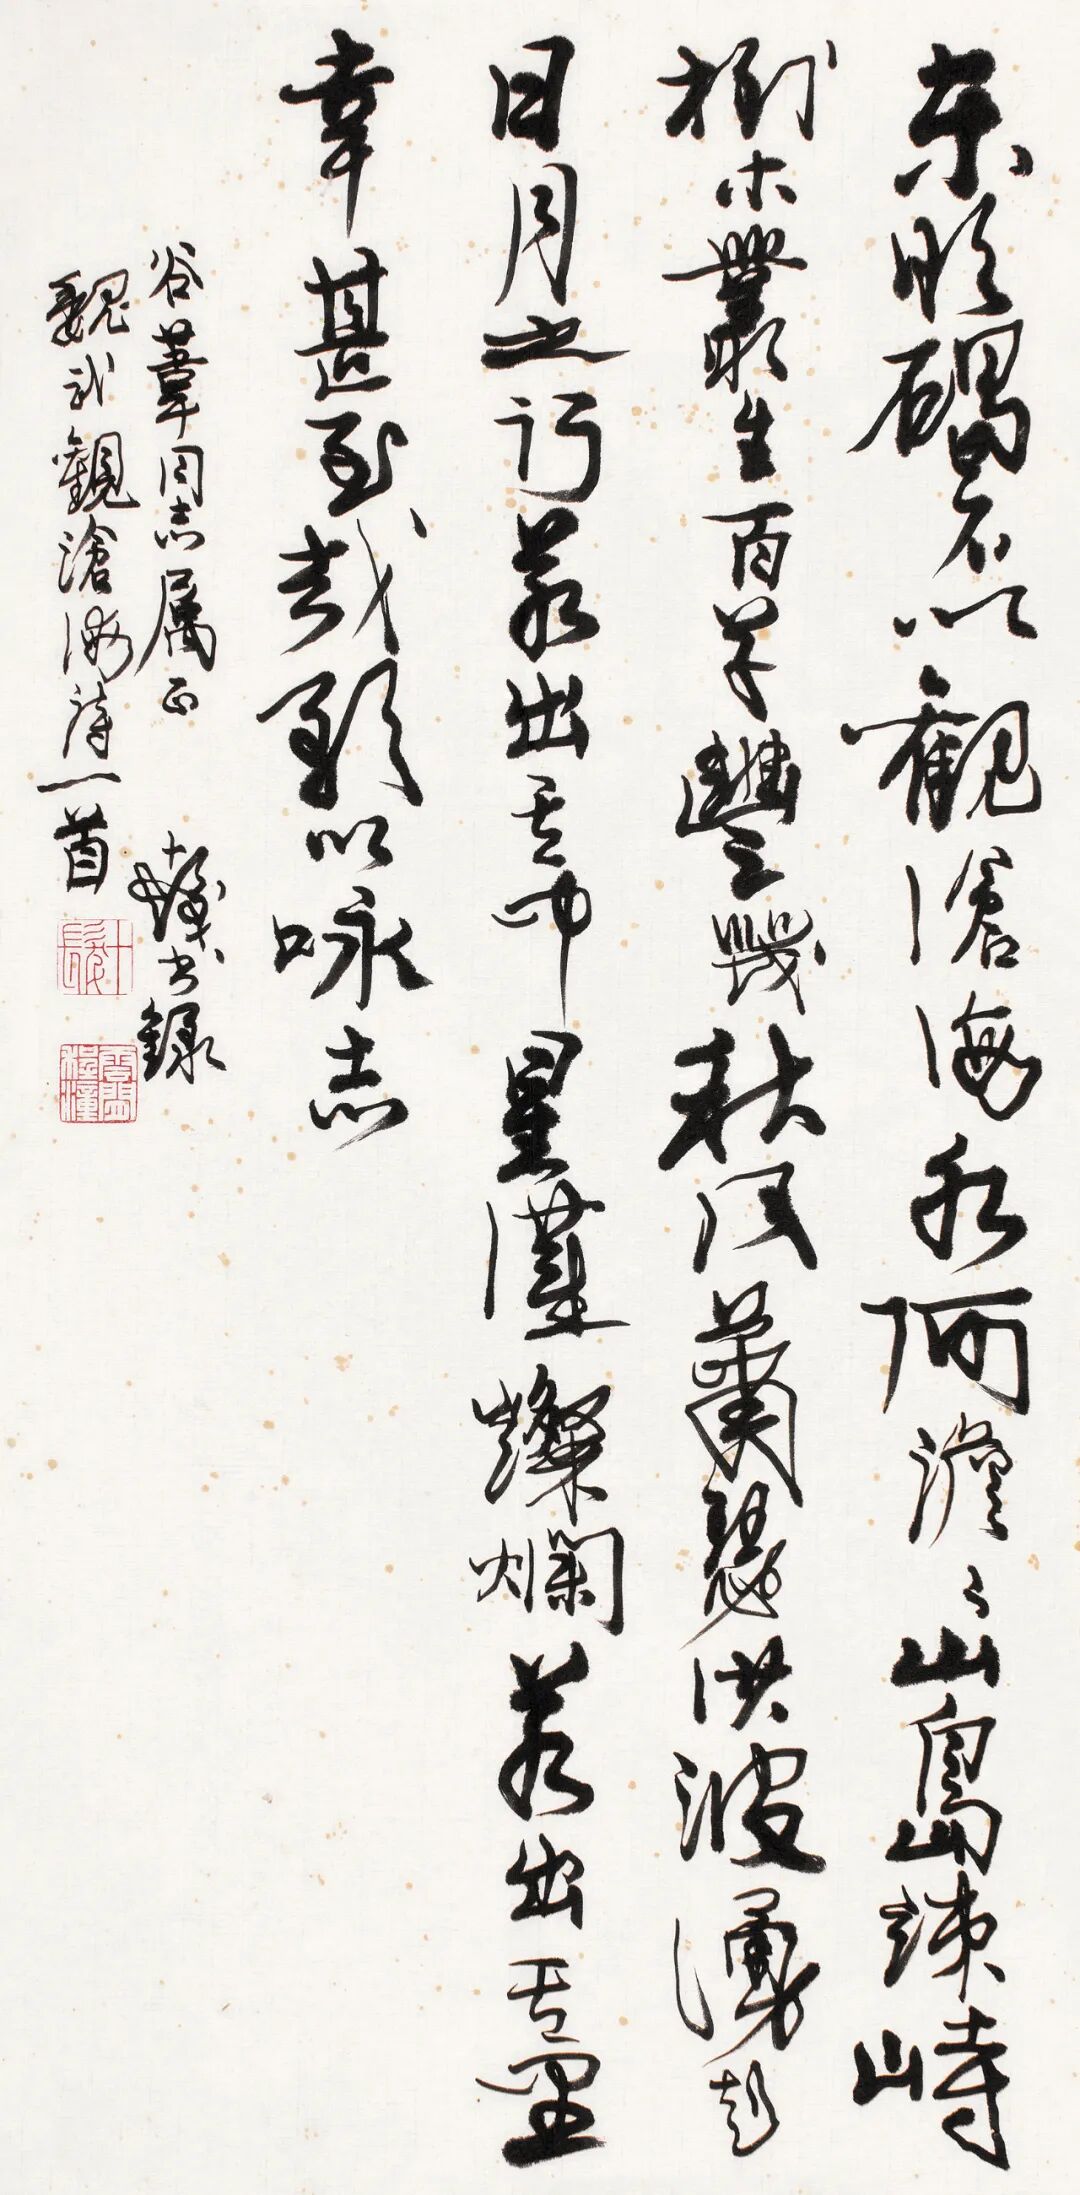 東臨碣石以觀滄海水何澹々山島竦峙
樹木叢生百草豐茂秋風蕭瑟洪波湧起
日月之行若出其中星漢燦爛若出其里
幸甚至哉歌以咏志
谷葦同志属正 十髮書錄
魏武觀滄海詩一首
雲間程潼